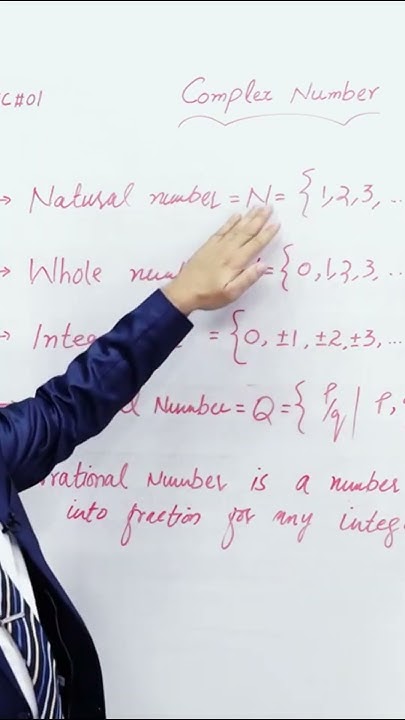 C#01
Complex Number
→ Natural number = N = { 1, 2, 3, ..
→ Whole num = { 0, 1, 2, 3, ...
→ Integ = { 0, ±1, ±2, ±3, ...
Number = Q = { p/q | p,
rrational Number is a number
into fraction for any integ